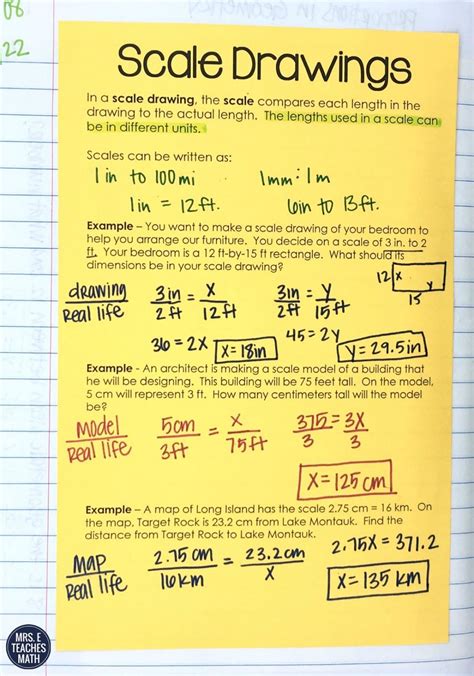 08
22
Scale Drawings
In a scale drawing, the scale compares each length in the
drawing to the actual length. The lengths used in a scale can
be in different units.
Scales can be written as:
1in to 100mi 1mm:1m
1in = 12ft. 6in to 13ft.
Example – You want to make a scale drawing of your bedroom to
help you arrange our furniture. You decide on a scale of 3 in. to 2
ft. Your bedroom is a 12 ft-by-15 ft rectangle. What should its
dimensions be in your scale drawing?
12 x y 15
drawing/Real life 3in/2ft = x/12ft 3in/2ft = y/15ft
36 = 2x x = 18in 45 = 2y y = 29.5in
Example - An architect is making a scale model of a building that
he will be designing. This building will be 75 feet tall. On the model,
5 cm will represent 3 ft. How many centimeters tall will the model
be?
Model/Real life 5cm/3ft = x/75ft 375/3 = 3x/3
x = 125 cm
Example – A map of Long Island has the scale 2.75 cm = 16 km. On
the map, Target Rock is 23.2 cm from Lake Montauk. Find the
distance from Target Rock to Lake Montauk.
2.75x = 371.2
Map/Real life 2.75 cm/16km = 23.2cm/x x = 135 km
MRS. E
TEACHES
MATH